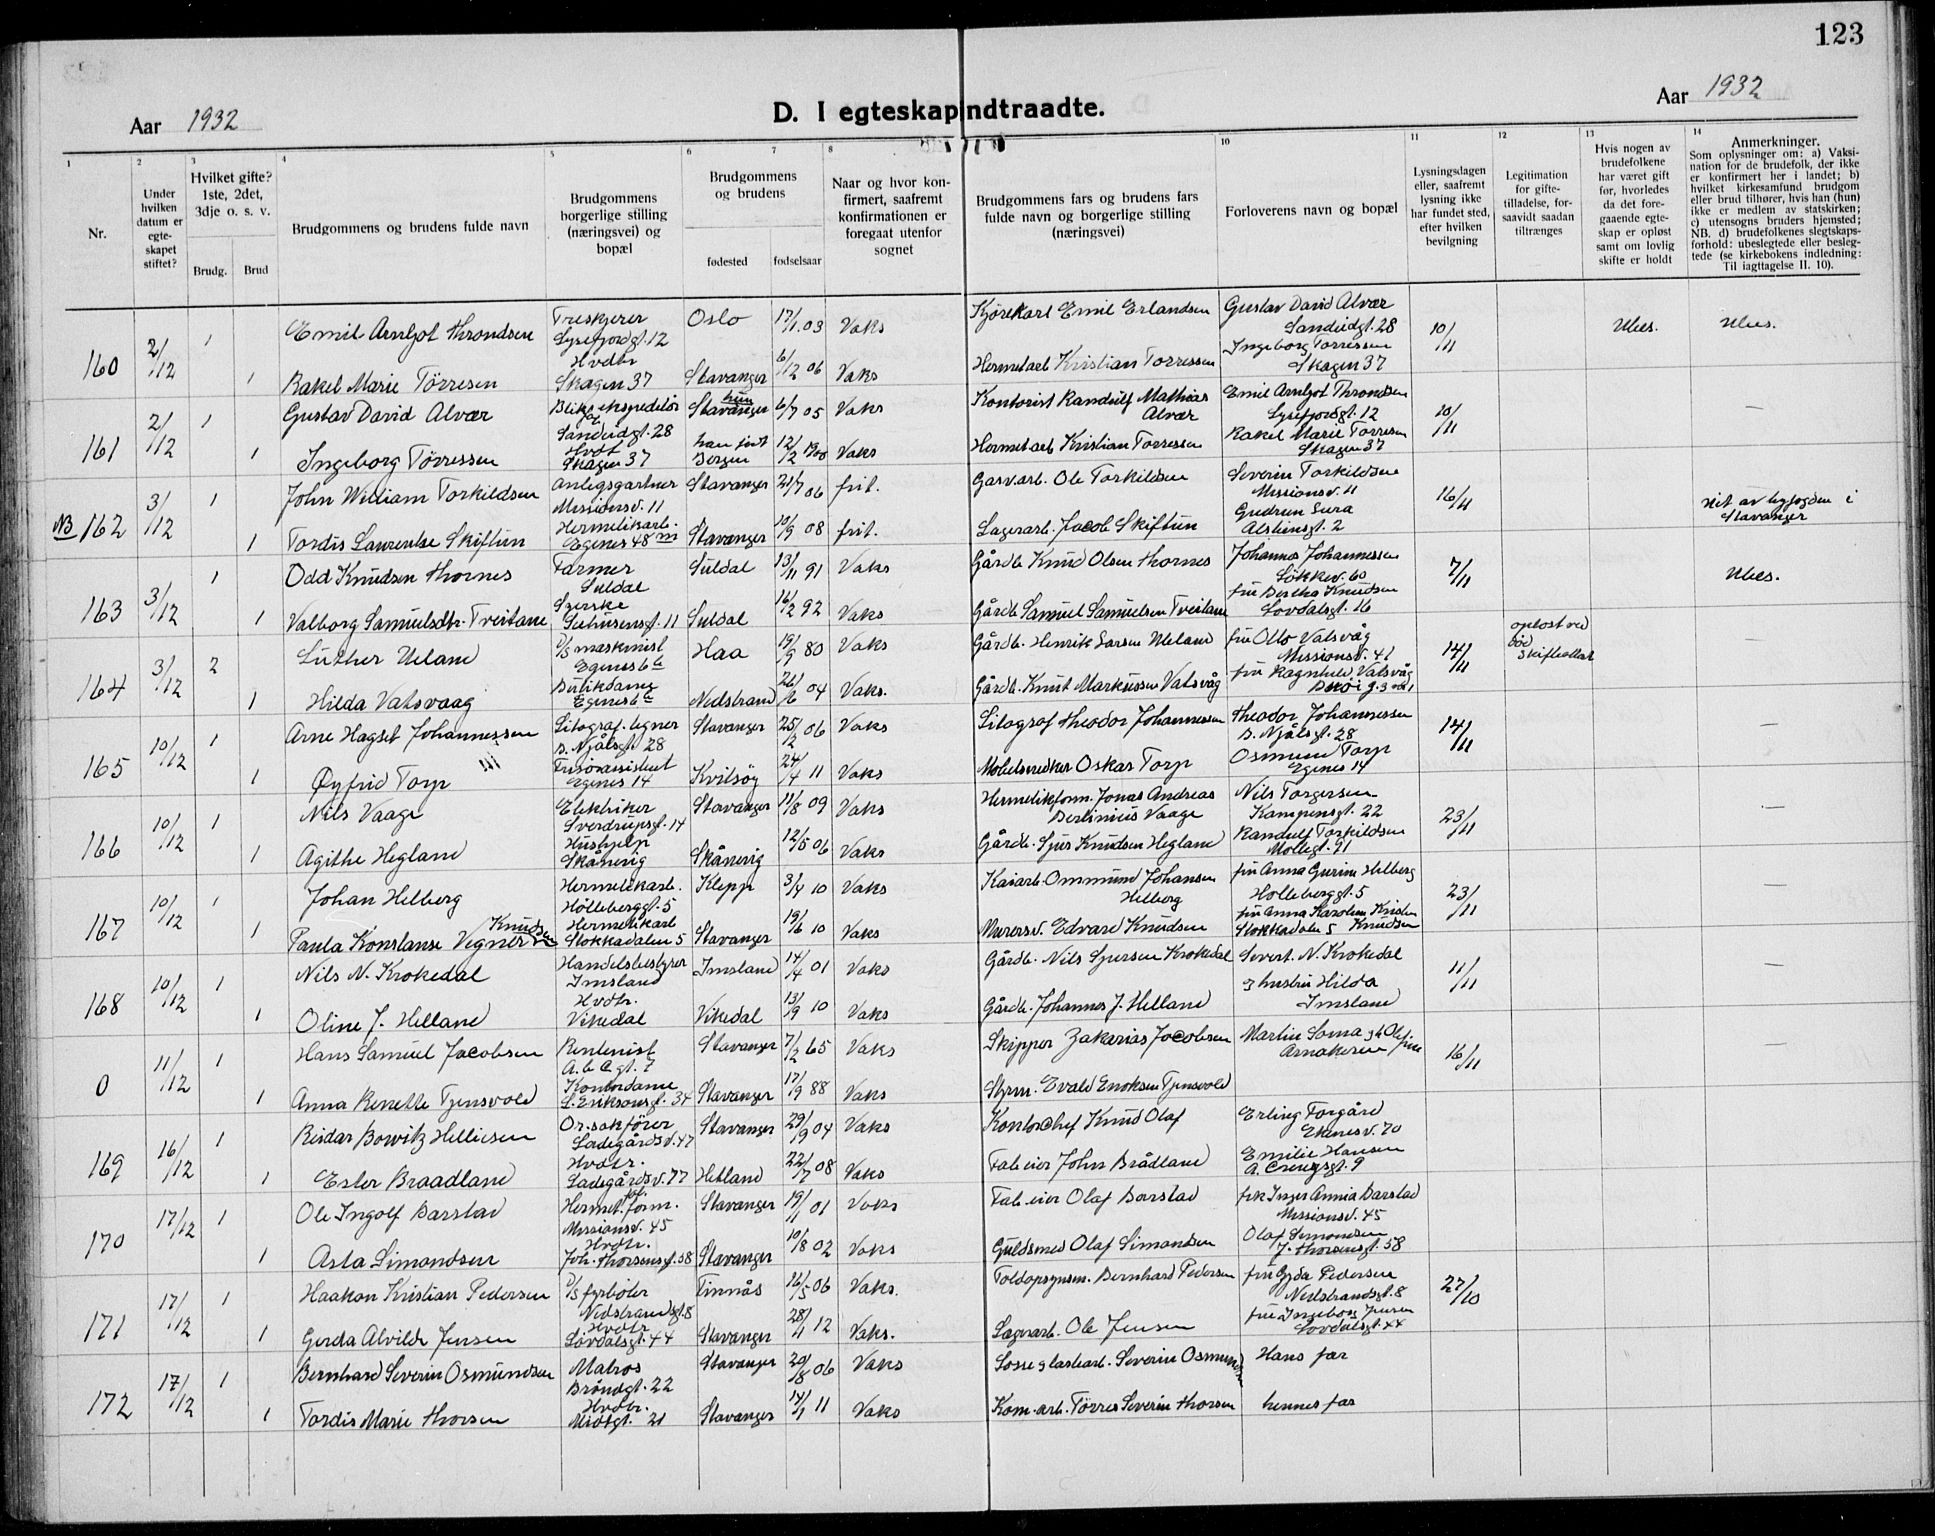 123
Aar 1932
D. I egteskap indtraadte.
Aar 1932
1 2 3 4 5 6 7 8 10 11 12 13 14
Nr.
Under hvilken datum er egteskapet stiftet?
Hvilket gifte? 1ste, 2det, 3dje o. s. v.
Brudg. Brud
Brudgommens og brudens fulde navn
Brudgommens borgerlige stilling (næringsvei) og bopæl
Brudgommens og brudens
fødested fødselsaar
Naar og hvor konfirmert, saafremt konfirmationen er foregaat utenfor sognet
Brudgommens fars og brudens fars fulde navn og borgerlige stilling (næringsvei)
Forloverens navn og bopæl
Lysningsdagen eller, saafremt lysning ikke har fundet sted, efter hvilken bevilgning
Legitimation for giftetilladelse, forsaavidt saadan tiltrænges
Hvis nogen av brudefolkene har været gift før, hvorledes da det foregaaende egteskap er opløst samt om lovlig skifte er holdt
Anmerkninger. Som oplysninger om: a) Vaksination for de brudefolk, der ikke er konfirmert her i landet; b) hvilket kirkesamfund brudgom eller brud tilhører, hvis han (hun) ikke er medlem av statskirken; c) utensogns bruders hjemsted; NB. d) brudefolkenes slegtskapsforhold: ubeslegtede eller beslegtede (se kirkebokens indledning: Til iagttagelse II. 10).
160 2/12 1 Emil Arnljot Throndsen Treskjerer Lysefjordgt. 12 Oslo 17/1.03 Vaks Kjörekarl Emil Erlandsen Gustav David Alvær Sandeidgt. 28 10/11 Ubes. Ubes.
1 Rakel Marie Törresen Hvdtr Skagen 37 Stavanger 6/12 06 Vaks Hermetarb Kristian Torressen Ingeborg Torressen Skagen 37
161 2/12 1 Gustav David Alvær Sandeidgt. 28 Stavanger 6/7 05 Vaks Kontorist Randulf Mathias Alvær Emil Arnljot Throndsen Lysefjordgt. 12 10/11 —
1 Ingeborg Törressen Hvdt Skagen 37 Bergen Vaks Hermetarb Kristian Torressen Rakel Marie Torresen Skagen 37
NB 162 3/12 1 John William Torkildsen Anlegsgartner Missionsv. 11 Stavanger 21/7 06 frit. Garvarb. Ole Torkildsen Severin Torkildsen Missionsv. 11 16/11 Vit av byfogden i Stavanger
1 Tordis Laurentse Skiftun Hermetikarb. Egenes 48 Stavanger 10/9 08 frit. Lagerarb. Jacob Skiftun Gudrun Lura Alsteinsgt. 2
163 3/12 1 Odd Knudsen Thornes Farmer Suldal Suldal 13/11 91 Vaks Gårdb Knud Olsen Thornes Johannes Johannessen Løkkev. 60 7/11 Ubes.
1 Valborg Samuelsdtr. Tveitane Syerske 11 Suldal 16/2 92 Vaks Gårdb Samuel Samuelsen Tveitane fru Bertha Knudsen Lovdalsgt. 16
164 3/12 2 Luther Ueland D/S maskinist Egenes 6a Haa 19/9 80 Vaks Gårdb. Henrik Larsen Ueland fru Otto Vatsvåg Missionsv. 41 14/11 oplost ved död —
1 Hilda Vatsvaag Butikdame Egenes 6a Nedstrand 26/6 04 Vaks. Gårdb. Knut Markussen Vatsvåg fru Ragnhild Vatsvåg
165 10/12 1 Arne Hagset Johannessen Litograf. tegner B. Njålsgt. 28 Stavanger 25/2 06 Vaks Litograf Theodor Johannessen Theodor Johannessen B. Njålsgt. 28 14/11 —
1 Öyfrid Torp Frisörassistent Egenes 14 Kvitsöy 24/4 11 Vaks Mobelsnedker Oskar Torp Osmund Torp Egenes 14
166 10/12 1 Nils Vaage Elektriker Sverdrupsgt. 14 Stavanger 11/8 09 Vaks Hermetikform. Jonas Andreas Berlinius Vaage Nils Torgersen Kampensgt. 22 23/11 —
1 Agithe Hegland Hushjelp Skånevig Skånevig 12/5 06 Vaks Gårdb. Sjur Knudsen Hegland Randulf Torkildsen Mollegt. 91
167 10/12 1 Johan Helberg Hermetikarb. Hölleberggt. 5 Klepp 3/4 10 Vaks Kaiarb. Ommund Johansen Helberg fru Anna Gurine Helberg Holleberggt. 5 23/11 —
1 Paula Konstanse Vegner Knudsen Hermetikarb Stokkadalen 5 Stavanger 19/6 10 Vaks Murersv. Edvard Knudsen fru Anna Karoline Knudsen Stokkadalen 5
168 10/12 1 Nils N. Krokedal Handelsbestyrer Imsland Imsland 14/4 01 Vaks Gårdb. Nils Sjursen Krokedal Severt N. Krokedal 11/11 —
1 Oline J. Helland Hvdtr. Vikedal Vikedal 13/9 10 Vaks Gårdb. Johannes J. Helland og hustru Hilda Imsland
0 11/12 1 Hans Samuel Jacobsen Rentenist A.b.c.gt. 7 Stavanger 7/2 65 Vaks Skipper Zakarias Jacobsen Martin Soma 16/11 —
1 Anna Renette Tjensvold Kontordame L. Eriksonsgt. 34 Stavanger 17/9 88 Vaks Styrm. Evald Enoksen Tjensvold
169 16/12 1 Reidar Bowitz Helliesen Or.sakförer Ladegårdsv. 47 Stavanger 29/9 04 Vaks Kontorchef Knud Olaf Erling Forgård Ekenesv. 70
1 Ester Braadland Hvdtr. Ladegårdsv. 77 Hetland 22/7 08 Vaks Fab eier John Brådland Emilie Hansen 9
170 17/12 1 Ole Ingolf Barstad Hermet. form. Missionsv. 45 Stavanger 19/11 01 Vaks Fab. eier Olaf Barstad frk Inger Annia Barstad Missionsv. 45
1 Asta Simondsen Hvdtr. Joh. Thorsensgt. 58 Stavanger 10/8 02 Vaks Guldsmed Olaf Simondsen Olaf Simondsen J. Thorsensgt. 58
171 17/12 1 Haakon Kristian Pedersen D/S fyrböter Nedstrandsgt. 8 Finnås 16/5 06 Vaks. Toldopsynsm. Bernhard Pedersen fru Gyda Pedersen Nedstrandsgt. 8 27/10
1 Gerda Alvilde Jensen Hvdtr Lovdalsgt. 44 Stavanger 28/11 12 Vaks. Lagerarb. Ole Jensen fru Ingeborg Jensen Lovdalsgt. 44
172 17/12 1 Bernhard Severin Osmundsen Matros Bröndgt. 22 Stavanger 20/8 06 Vaks Losse og lastearb. Severin Osmundsen Hans far
1 Tordis Marie Thorsen Hvdtr. Midtgt. 21 Stavanger 14/1 11 Vaks Kom. arb. Törres Severin Thorsen hennes far